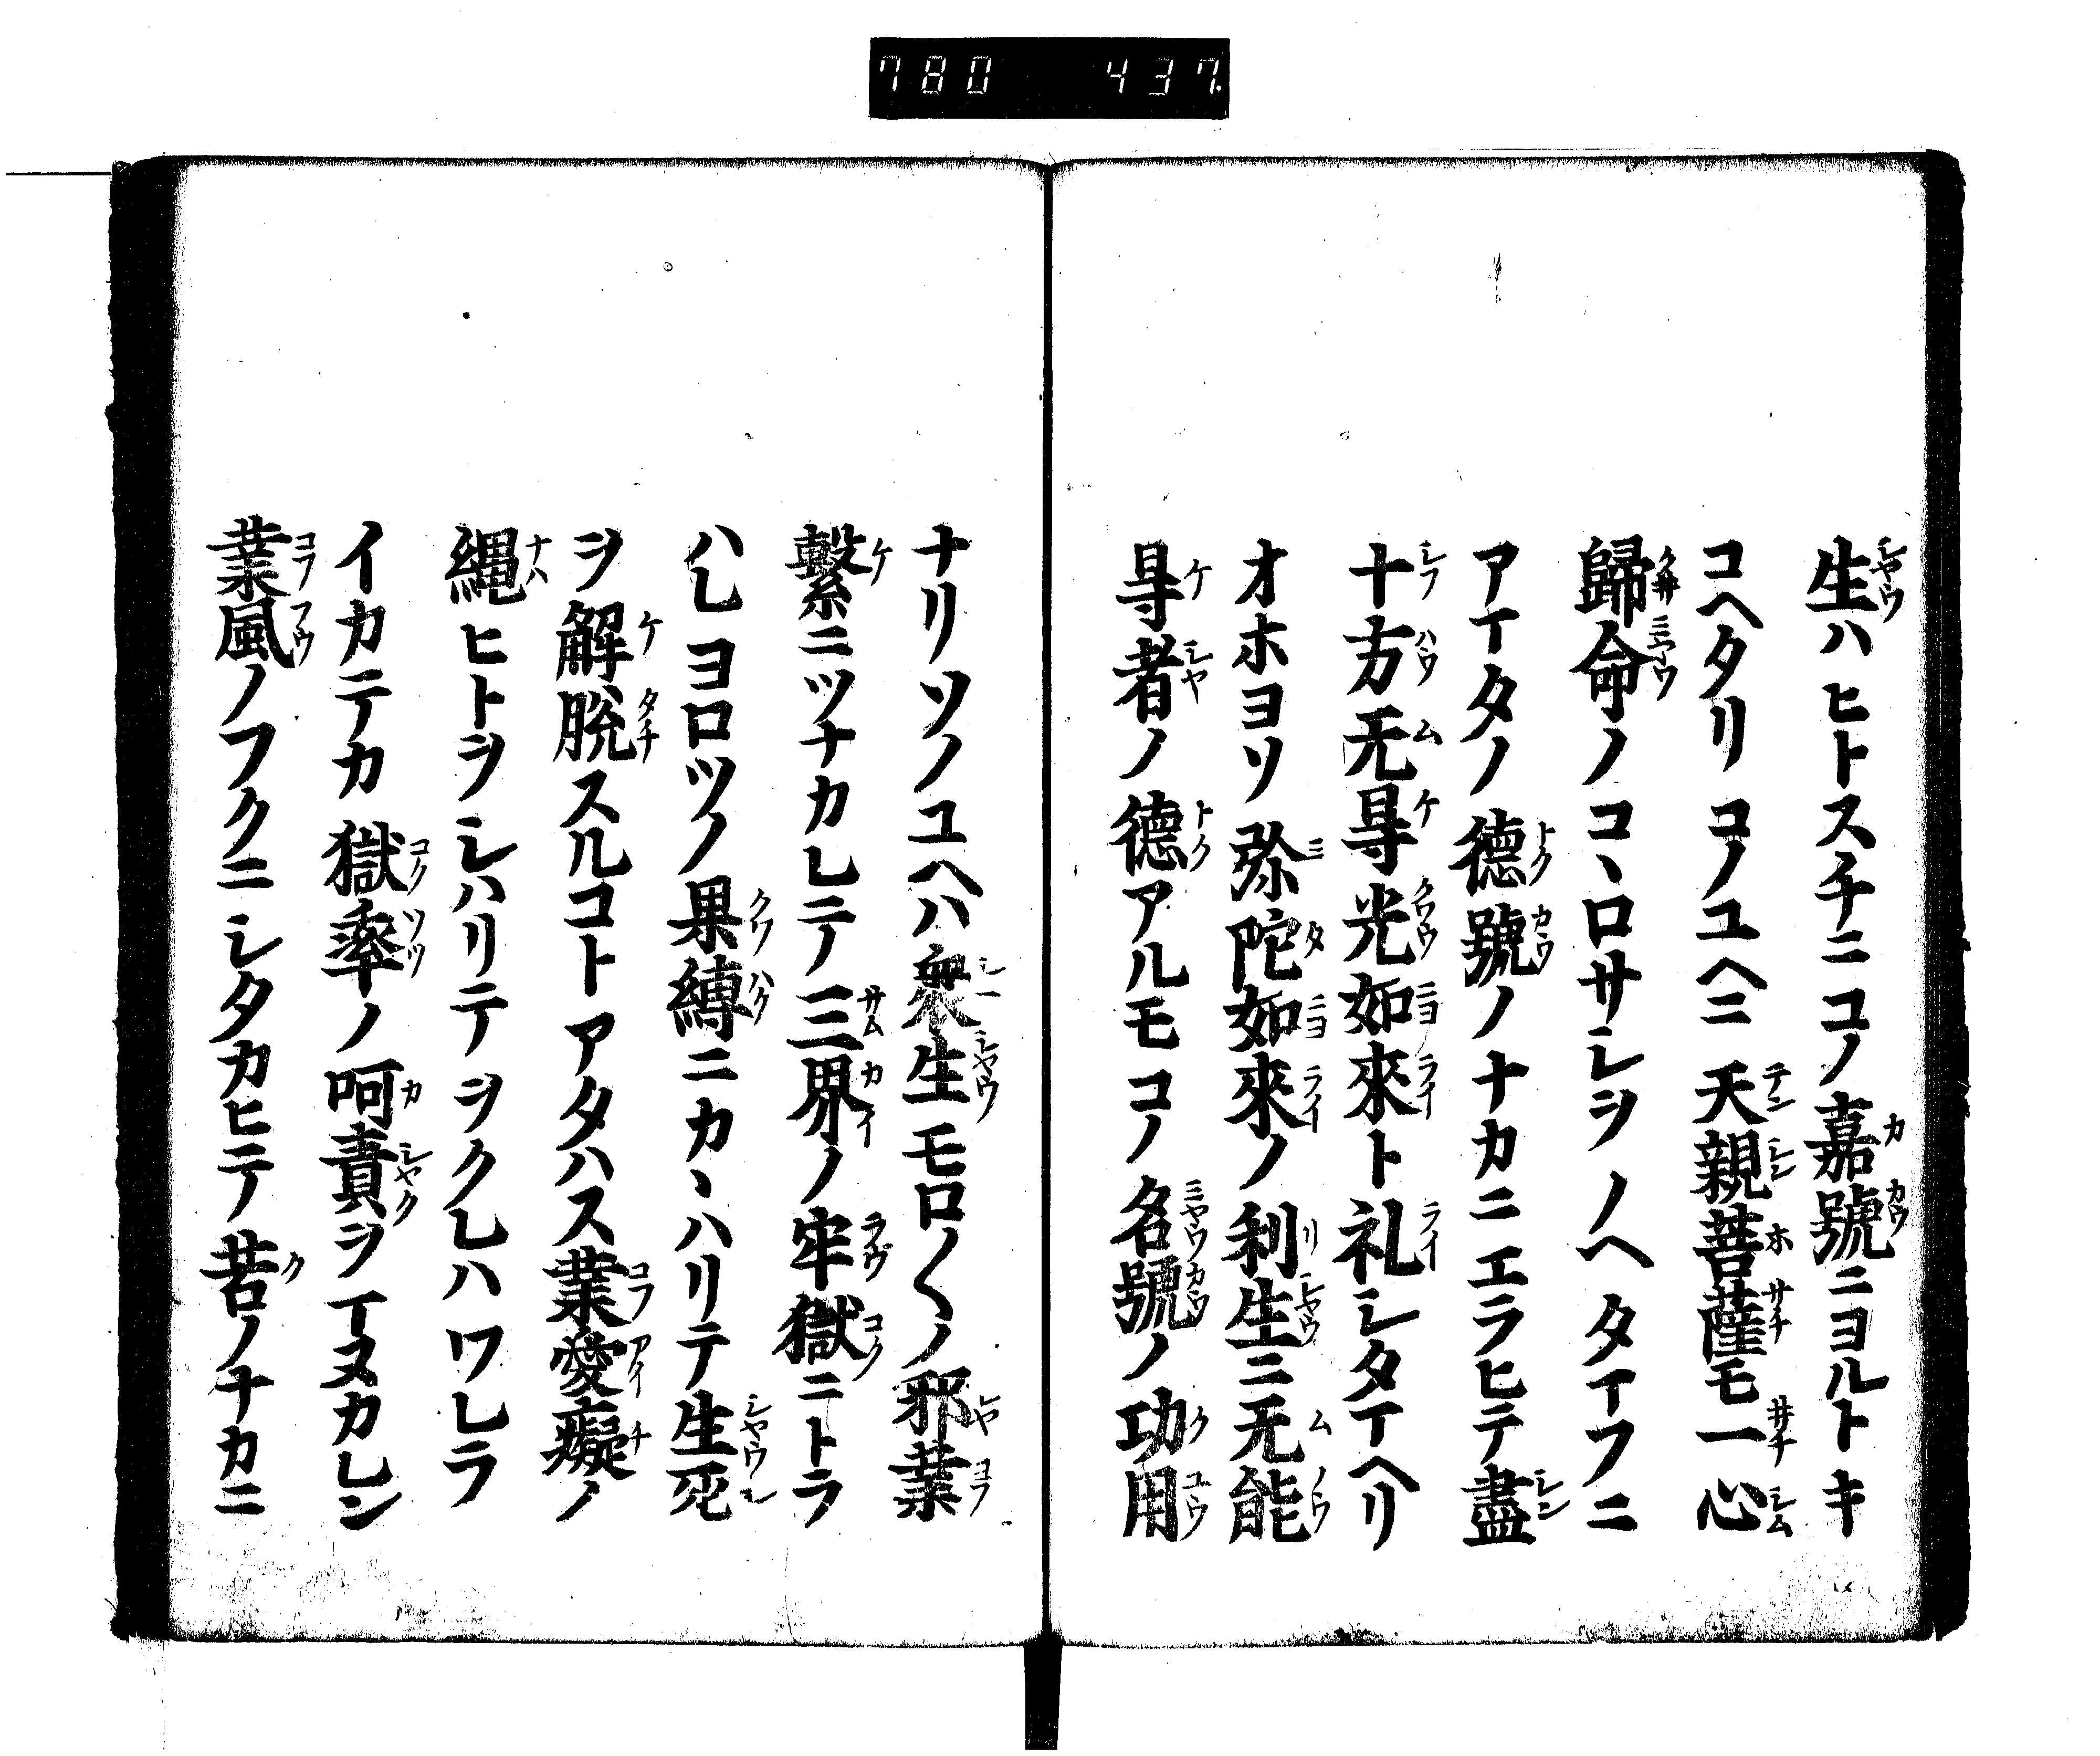 780 437
生ハヒトスチニコノ嘉號ニヨルトキ
コヘタリコノユヘニ天親菩薩モ一心
歸命ノコヽロサシヲノヘタマフニ
アマタノ德號ノナカニエラヒテ盡
十方无㝵光如來ト礼シタマヘリ
オホヨソ弥陀如來ノ利生ニ无能
㝵者ノ德アルモコノ名號ノ功用
ナリソノユヘハ衆生モロ〱ノ邪業
繫ニツナカレテ三界ノ牢獄ニトラ
ハレヨロツノ果縛ニカヽハリテ生死
ヲ解脱スルコトアタハス業愛癡ノ
縄ヒトヲシハリテヲクレハワレラ
イカテカ獄率ノ呵責ヲマヌカレン
業風ノフクニシタカヒテ苦ノナカニ